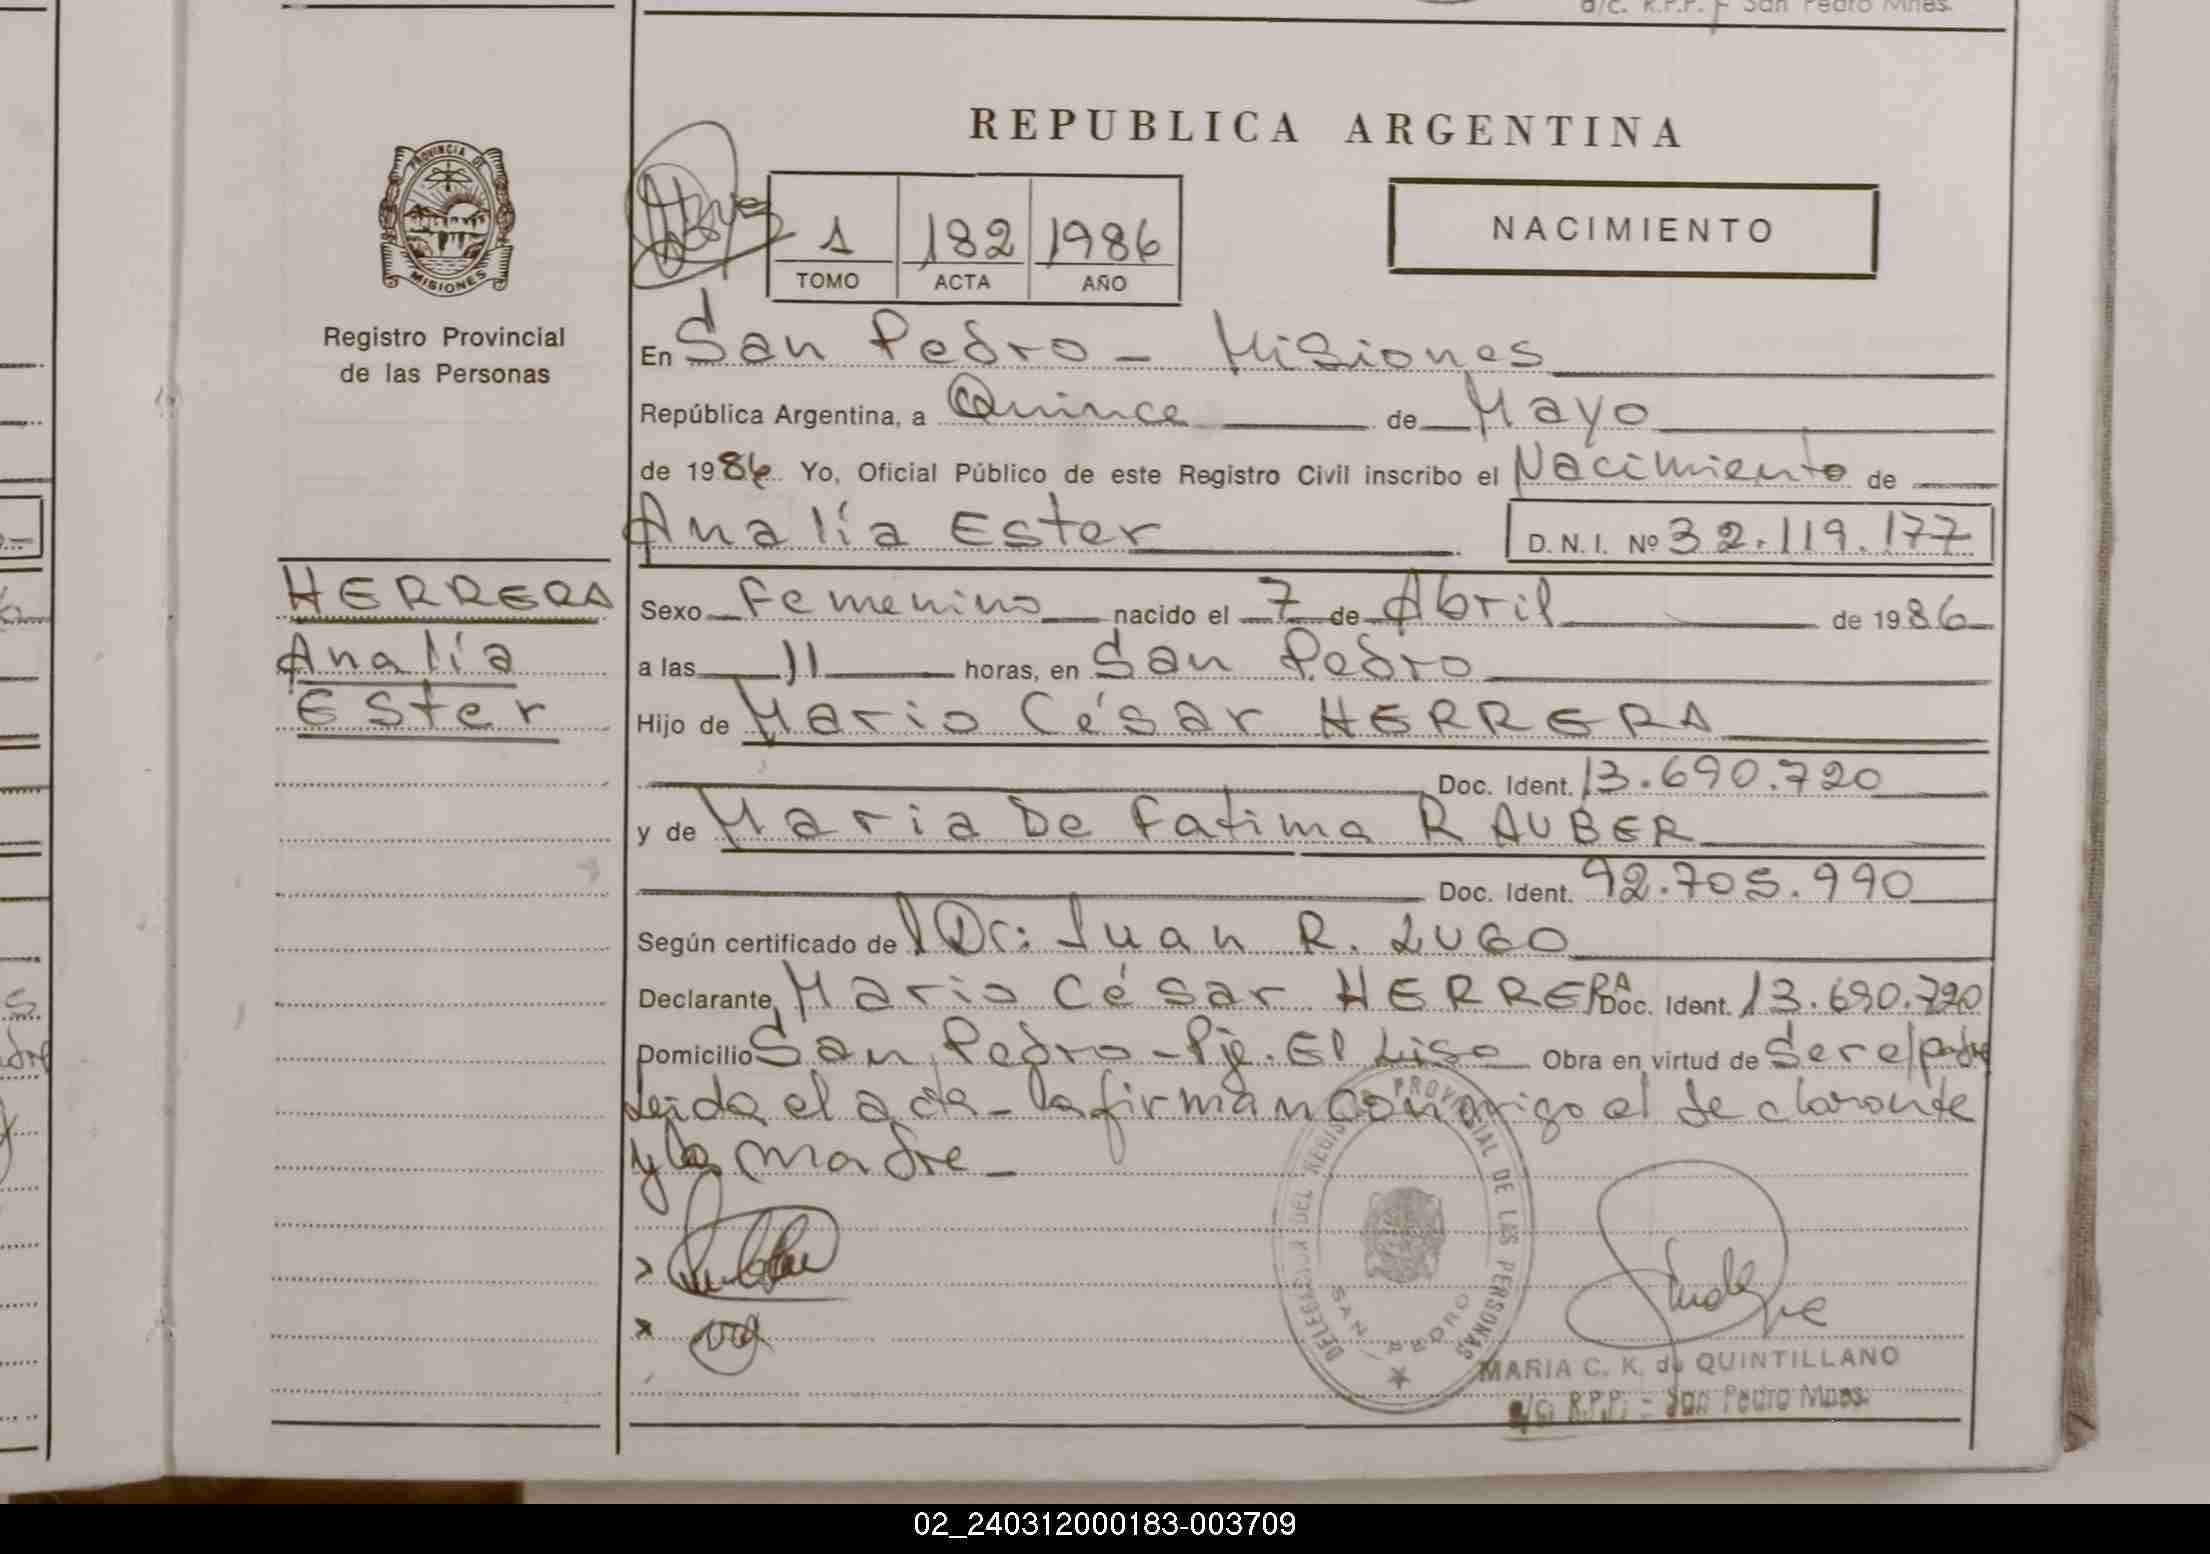 d/c. R.P.P. - San Pedro Mnes.
REPUBLICA ARGENTINA
PROVINCIA DE
MISIONES
Registro Provincial
de las Personas
1 182 1986
TOMO ACTA AÑO
NACIMIENTO
En San Pedro - Misiones
República Argentina, a Quince de Mayo
de 1986. Yo, Oficial Público de este Registro Civil inscribo el Nacimiento de
Analía Ester D. N. I. Nº 32.119.177
HERRERA
Analía
Ester
Sexo Femenino nacido el 7 de Abril de 1986
a las 11 horas, en San Pedro
Hijo de Mario César HERRERA
Doc. Ident. 13.690.720
y de Maria De Fatima RAUBER
Doc. Ident. 92.705.990
Según certificado de Dr: Juan R. LUGO
Declarante, Mario César HERRERA Doc. Ident. 13.690.720
Domicilio San Pedro - Pje. El Liso Obra en virtud de Ser el padre
Leida el acta - la firman conmigo el declarante
y la madre -
DELEGACION DEL REGISTRO PROVINCIAL DE LAS PERSONAS
SAN PEDRO
MARIA C. K. de QUINTILLANO
a/c. R.P.P. - San Pedro Mnes.
02_240312000183-003709